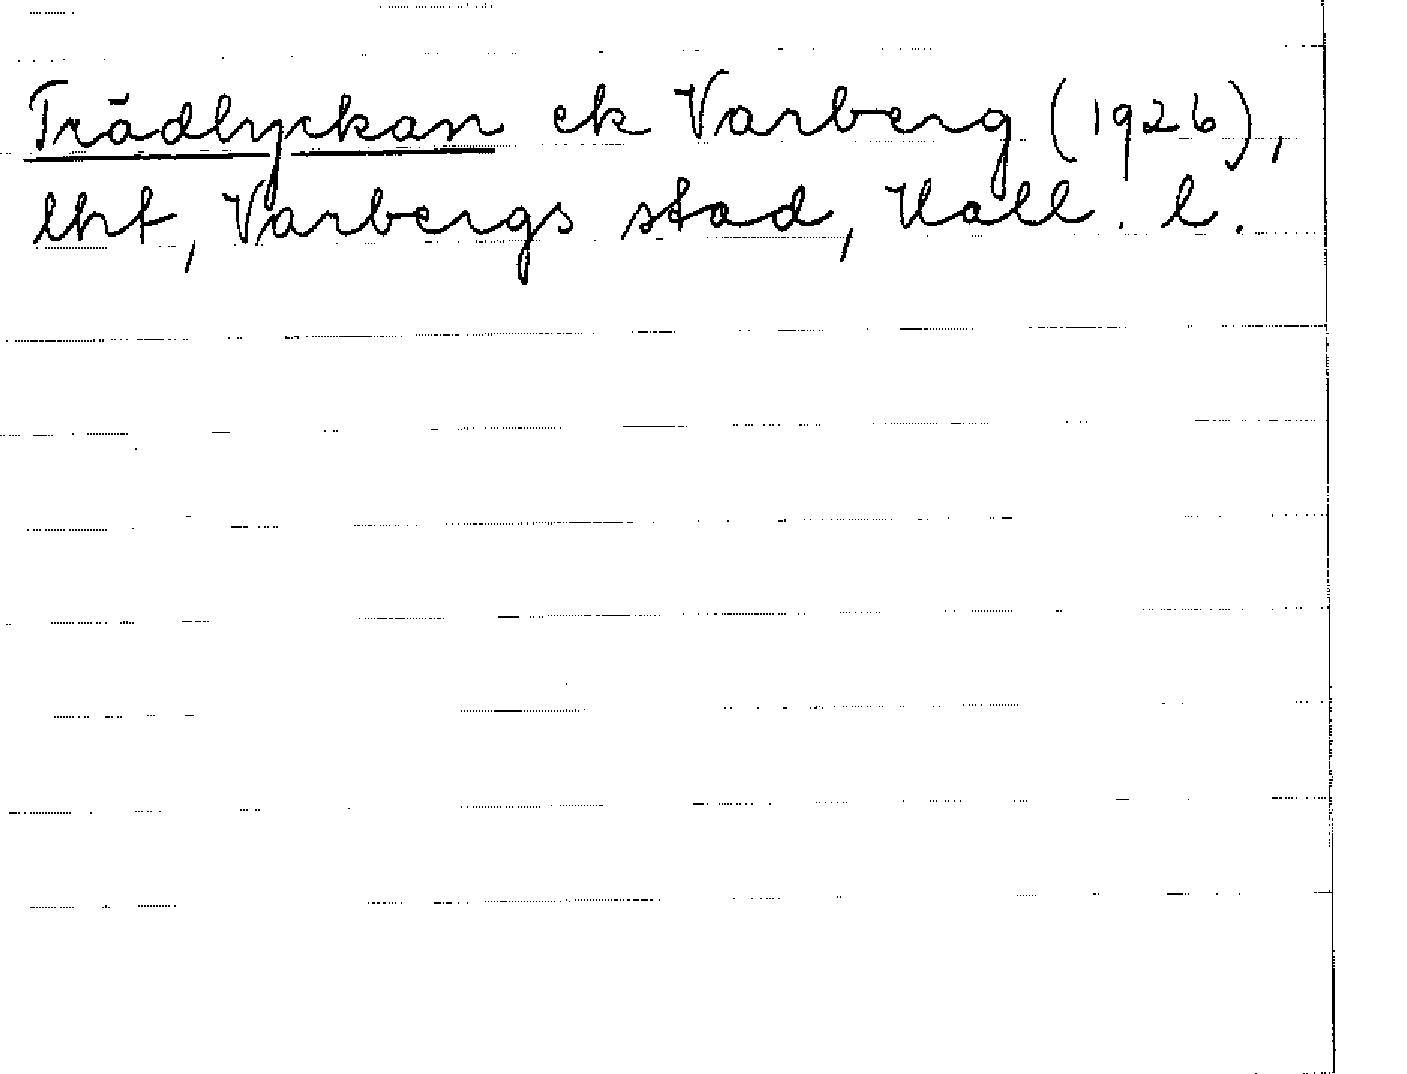 Trädlyckan ek Varberg (1926),
lht, Varbergs stad, Hall. l.